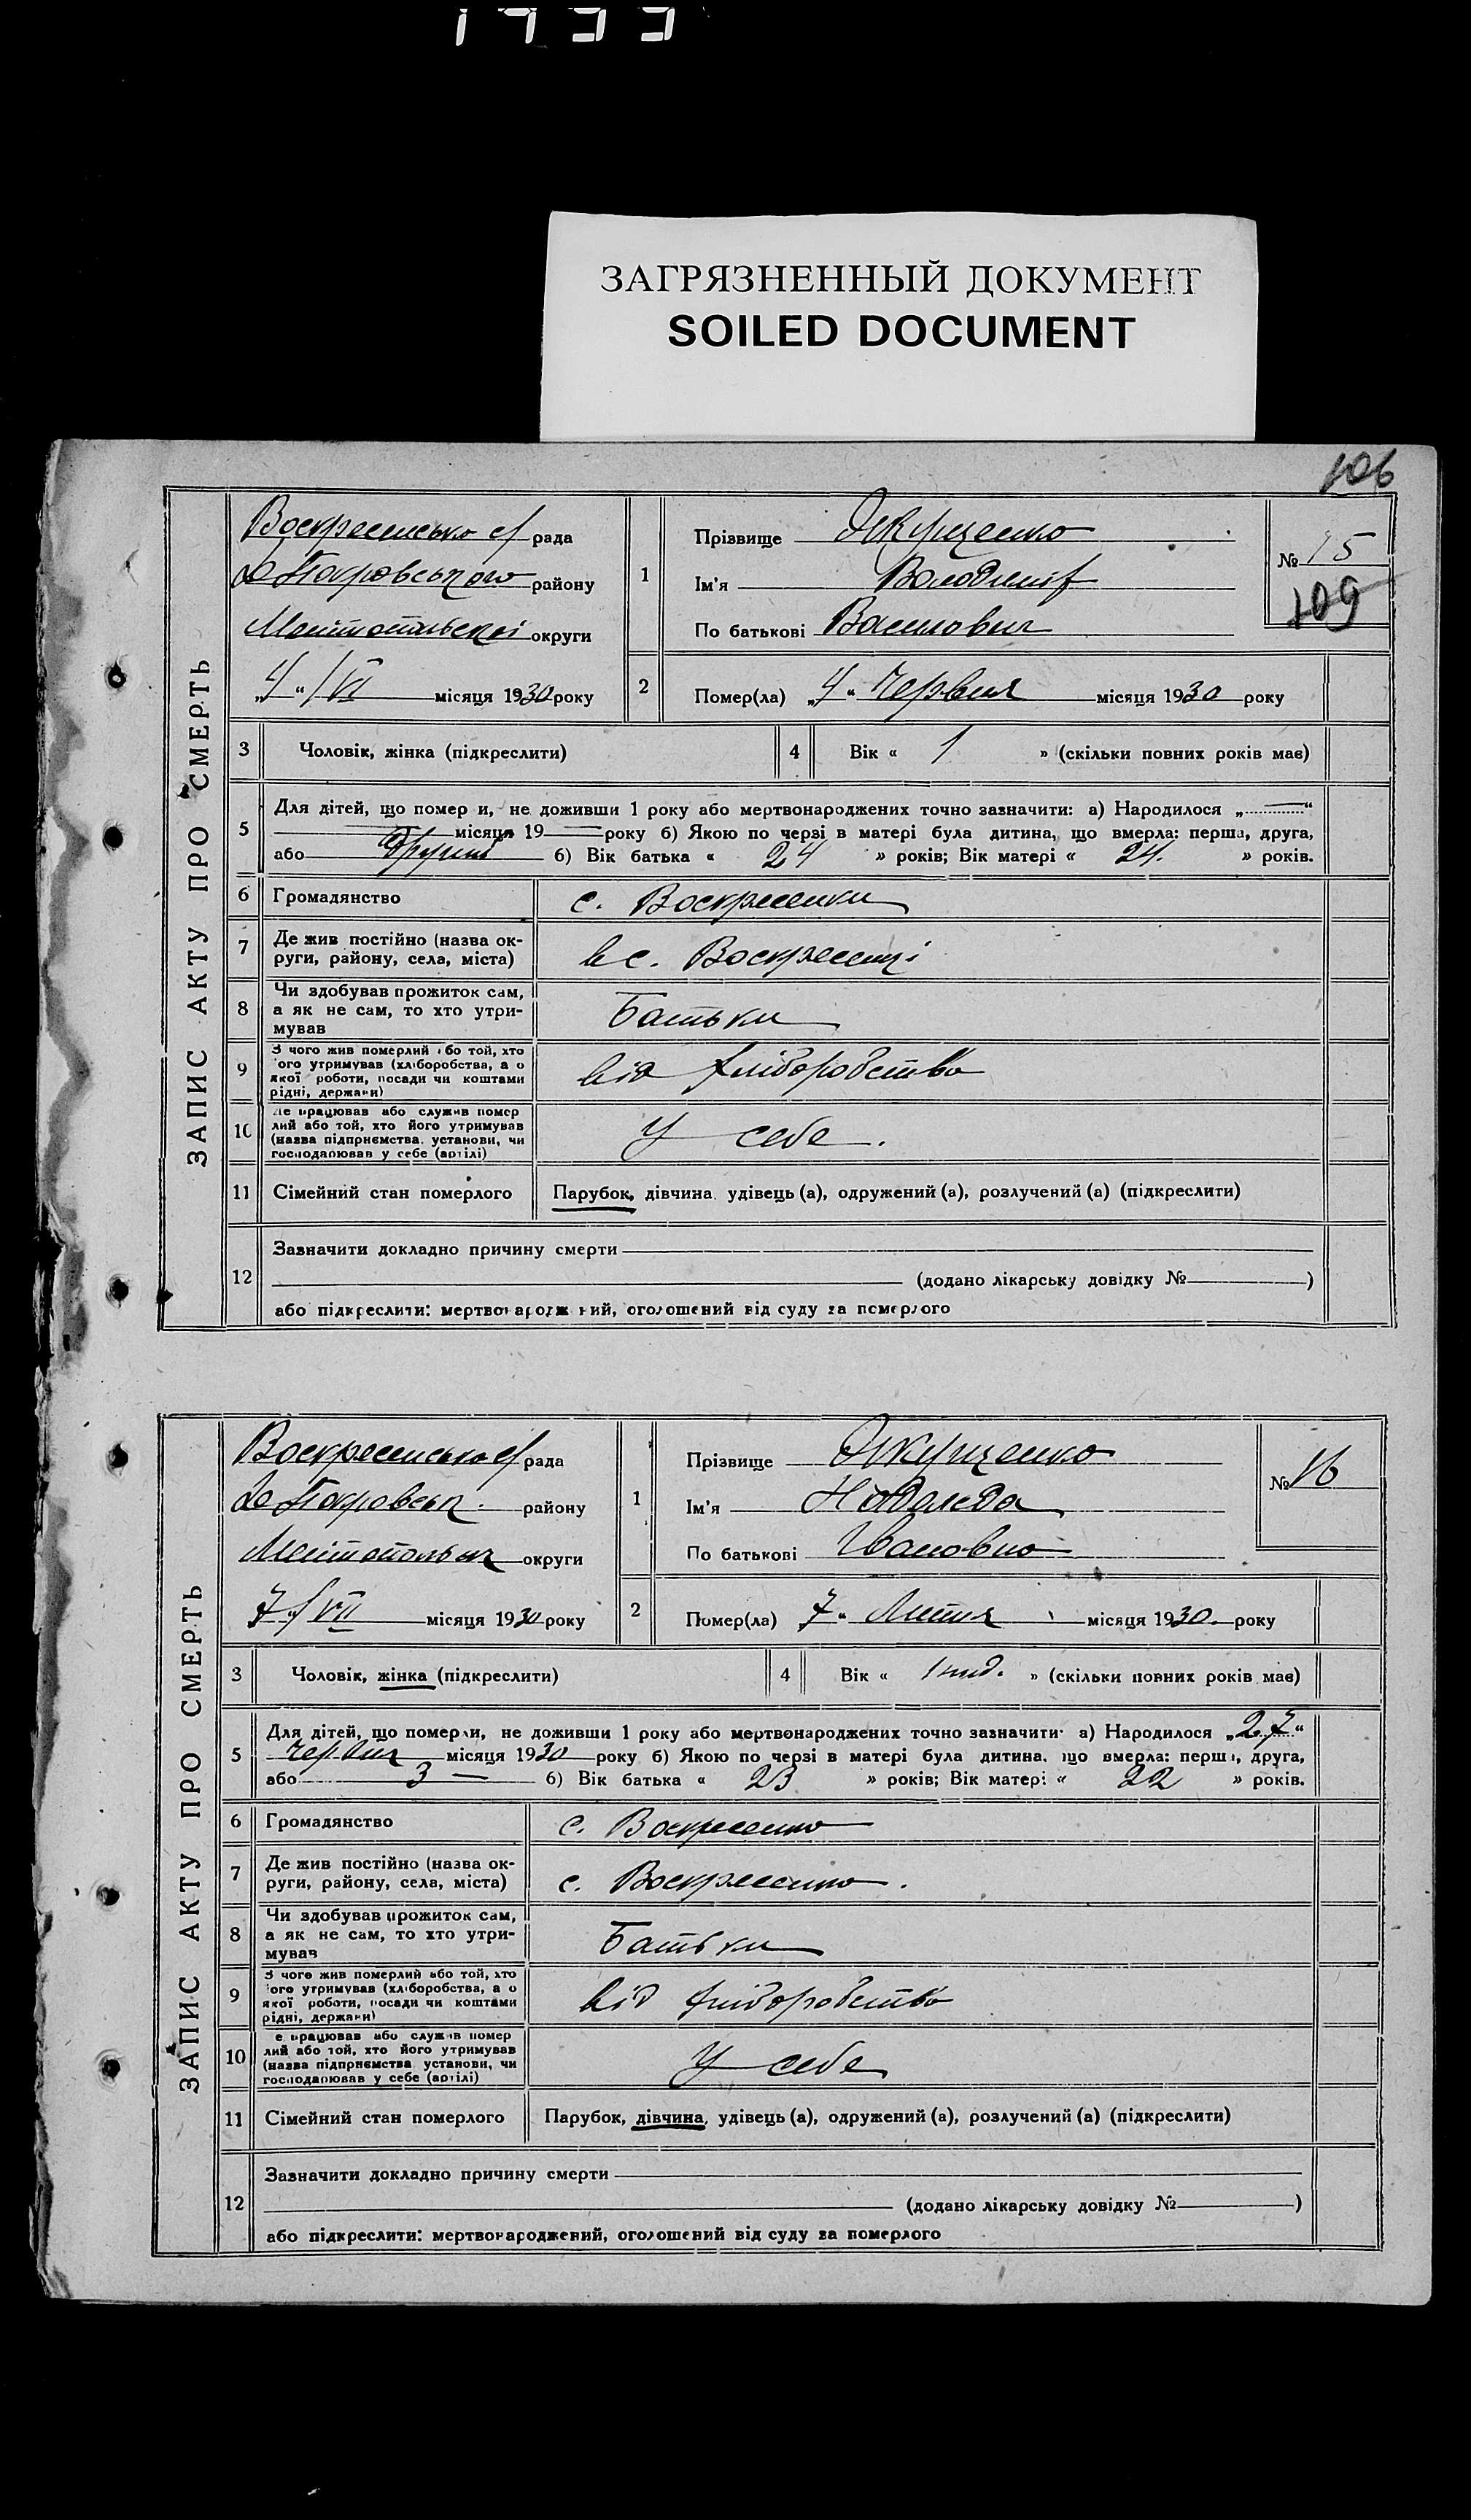 1933
ЗАГРЯЗНЕННЫЙ ДОКУМЕНТ
SOILED DOCUMENT
106
ЗАПИС АКТУ ПРО СМЕРТЬ
Воскресенська с/ рада
Покровського району
Мелітопільської округи
„4“ /VI місяця 1930 року
1
Прізвище Якущенко
Ім'я Володимір
По батькові Василович
№ 15
109
2
Помер(ла) „4“ Червня місяця 1930 року
3 Чоловік, жінка (підкреслити)
4 Вік « 1 » (скільки повних років має)
5 Для дітей, що помер и, не доживши 1 року або мертвонароджених точно зазначити: а) Народилося „ “
місяця 19 року б) Якою по черзі в матері була дитина, що вмерла: перша, друга,
або 6) Вік батька « 24 » років; Вік матері « 24 » років.
6 Громадянство с. Воскресенки
7 Де жив постійно (назва ок-
руги, району, села, міста) в с. Воскресенці
8 Чи здобував прожиток сам,
а як не сам, то хто утри-
мував Батьки
9 З чого жив померлий або той, хто
його утримував (хліборобства, а о
якої роботи, посади чи коштами
рідні, держави) від хліборобства
10 Де працював або служив помер
лий або той, хто його утримував
(назва підприємства, установи, чи
господарював у себе (артілі) У себе.
11 Сімейний стан померлого Парубок, дівчина, удівець (а), одружений (а), розлучений (а) (підкреслити)
12 Зазначити докладно причину смерти
(додано лікарську довідку № )
або підкреслити: мертвонароджений, оголошений від суду за померлого
ЗАПИС АКТУ ПРО СМЕРТЬ
Воскресенська с/ рада
Покровськ. району
округи
7 /VII місяця 1930 року
1
Прізвище Якущенко
Ім'я Надежда
По батькові Івановна
№ 16
2
Помер(ла) 7 “ Липня місяця 1930 року
3 Чоловік, жінка (підкреслити)
4 Вік « 1 тид. » (скільки повних років має)
5 Для дітей, що померли, не доживши 1 року або мертвонароджених точно зазначити: а) Народилося „27“
червня місяця 1930 року б) Якою по черзі в матері була дитина, що вмерла: перша, друга,
або 3 — 6) Вік батька « 23 » років; Вік матері « 22 » років.
6 Громадянство с. Воскресенка
7 Де жив постійно (назва ок-
руги, району, села, міста) с. Воскресенка.
8 Чи здобував прожиток сам,
а як не сам, то хто утри-
мував Батьки
9 З чого жив померлий або той, хто
його утримував (хліборобства, а о
якої роботи, посади чи коштами
рідні, держави) від хліборобства
10 е працював або служив помер
лий або той, хто його утримував
(назва підприємства установи, чи
господарював у себе (артілі) У себе
11 Сімейний стан померлого Парубок, дівчина, удівець (а), одружений (а), розлучений (а) (підкреслити)
12 Зазначити докладно причину смерти
(додано лікарську довідку № )
або підкреслити: мертвонароджений, оголошений від суду за померлого